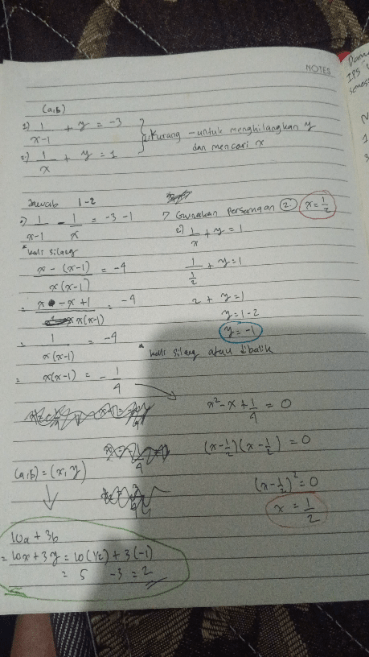 NOTES
(a,b)
1) 1/(x-1) + y = -3
2) 1/x + y = 1
} Kurang - untuk menghilangkan y
dan mencari x
Jawab 1-2
1/(x-1) - 1/x = -3 -1
* kali silang
x - (x-1) / x(x-1) = -4
= x - x + 1 / x(x-1) = -4
= 1 / x(x-1) = -4
* kali silang atau dibalik
= x(x-1) = - 1/4
x² - x + 1/4 = 0
(x-1/2)(x-1/2) = 0
(x-1/2)² = 0
x = 1/2
> Gunakan Persamaan (2) x = 1/2
2) 1/x + y = 1
1/(1/2) + y = 1
2 + y = 1
y = 1-2
y = -1
(a,b) = (x,y)
10a + 3b
= 10x + 3y = 10(1/2) + 3(-1)
= 5 -3 = 2